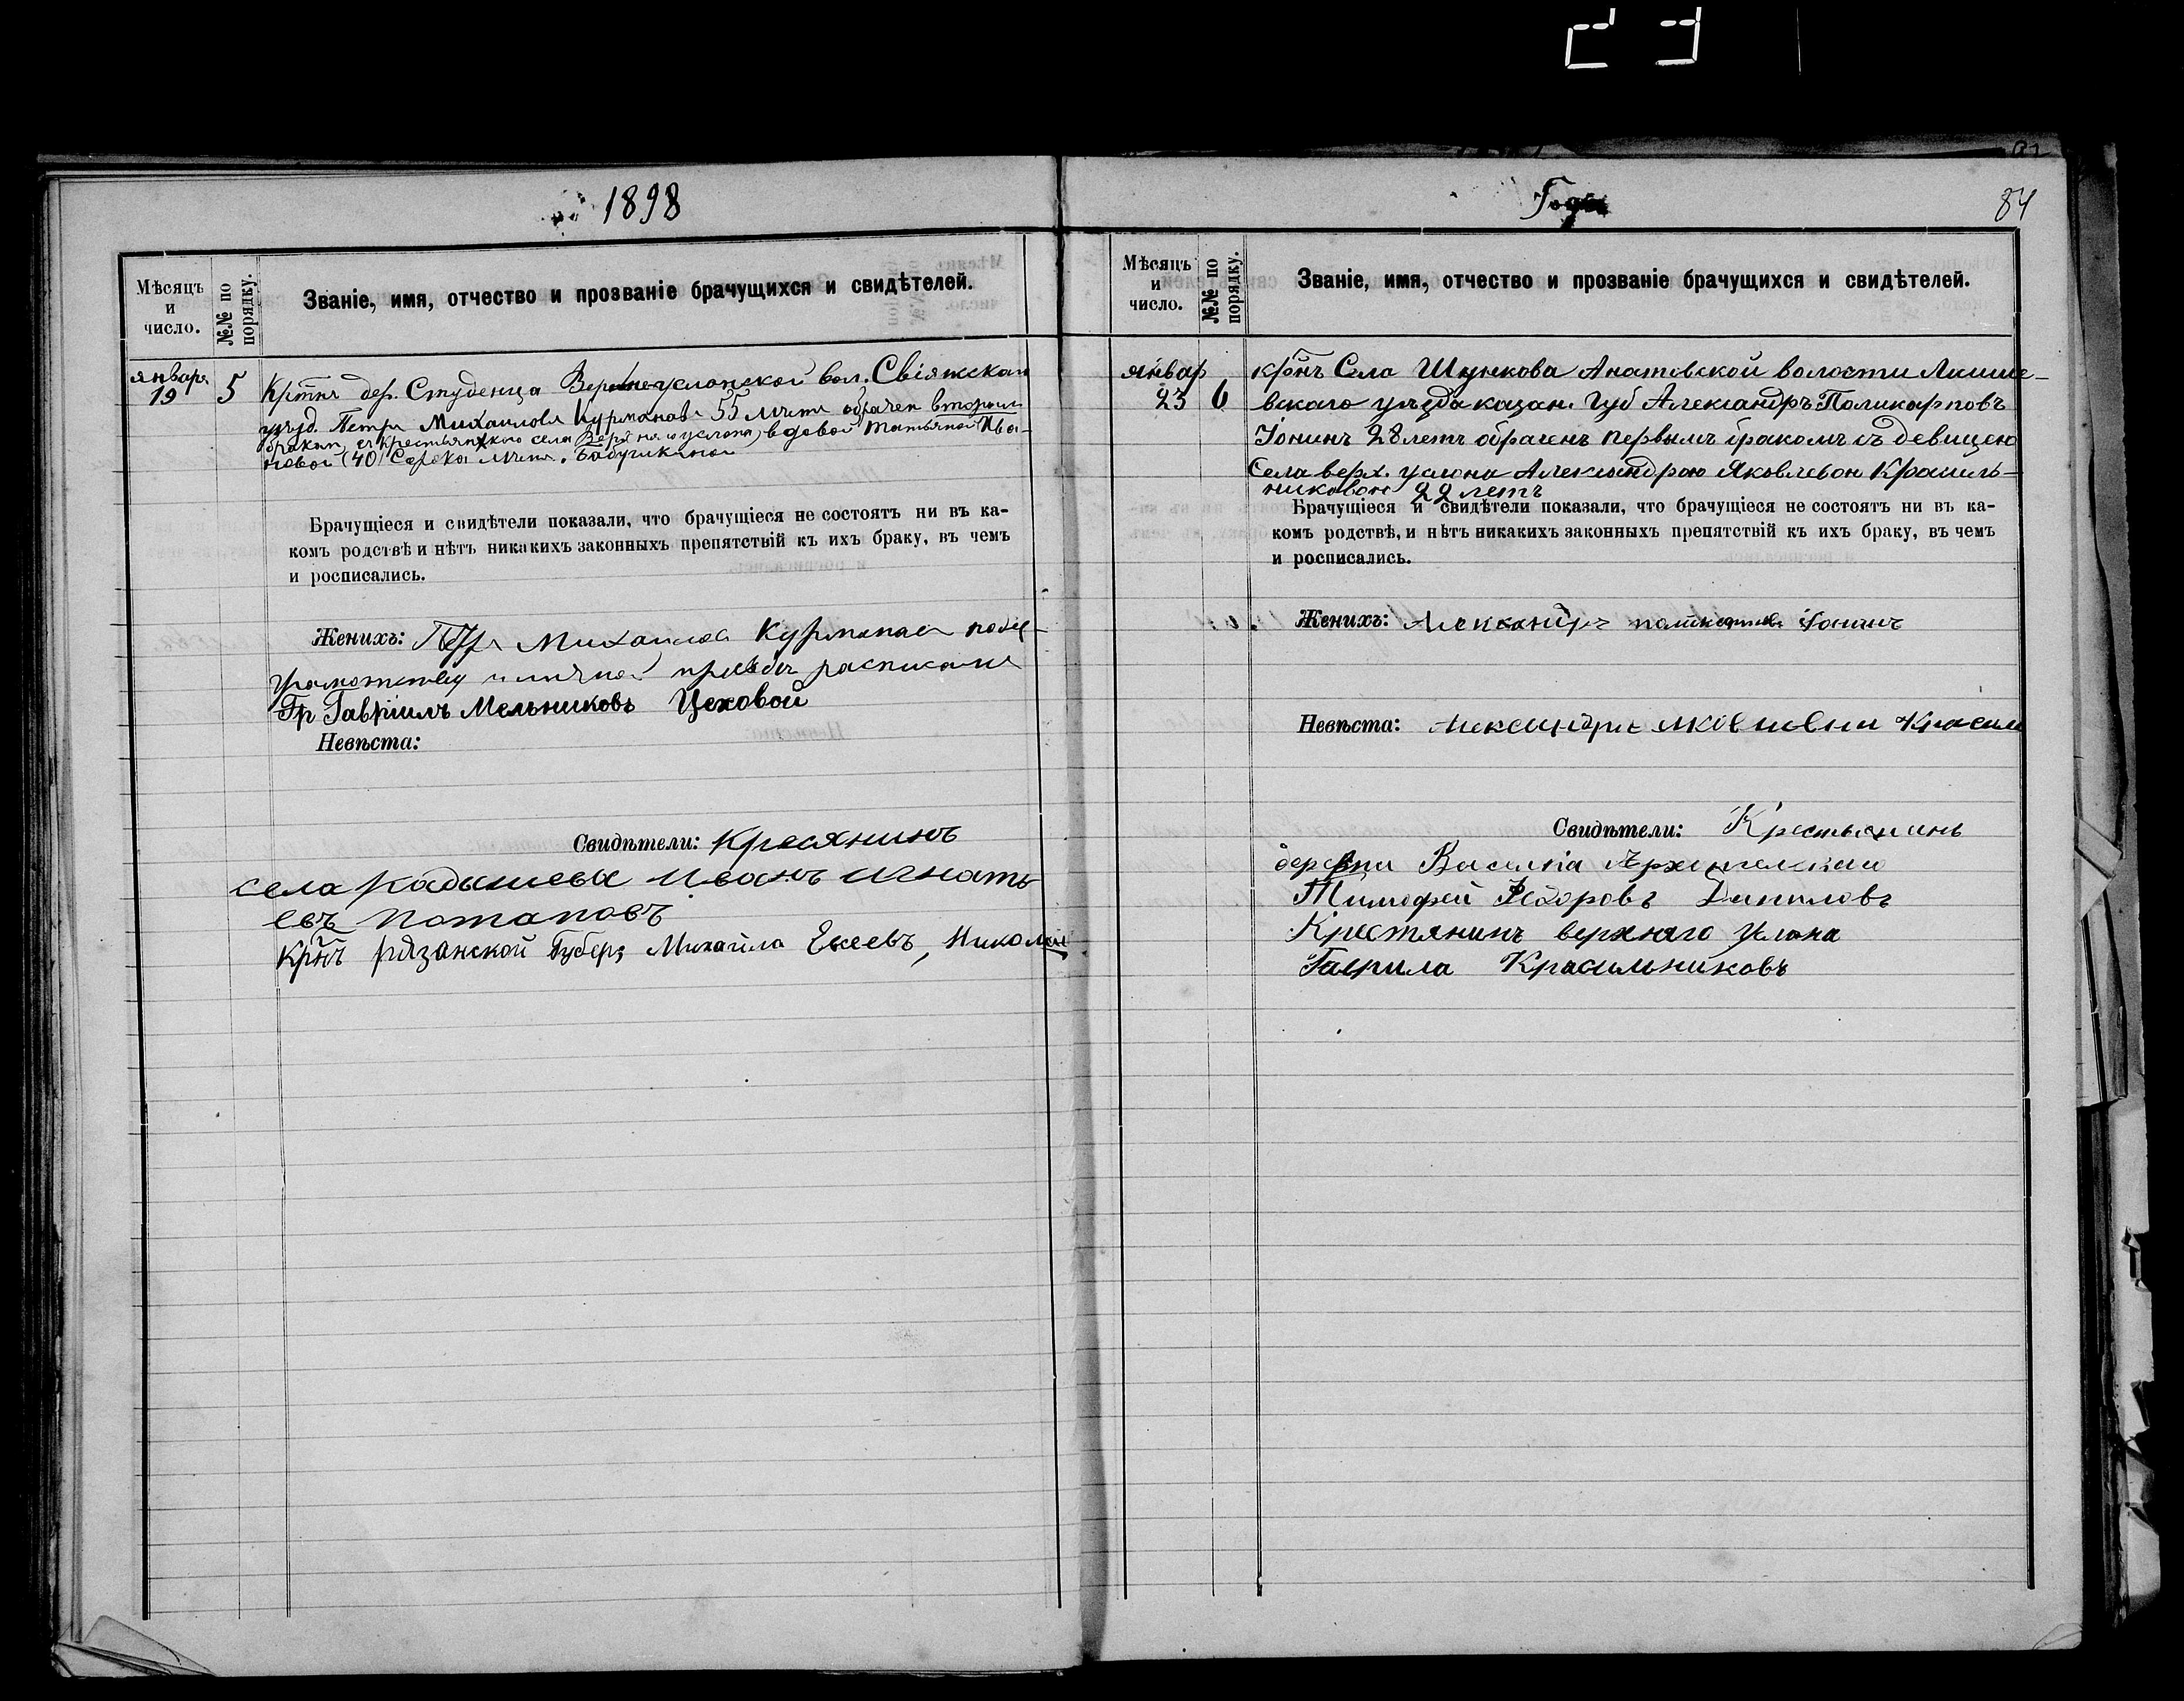 1898
Мѣсяцъ
и
число.
№№ по
порядку.
Званіе, имя, отчество и прозваніе брачущихся и свидѣтелей.
январ.
19
5
Кртнъ дер. Студенца Верхнеуслонской вол. Свіяжскаго
уѣзд. Петръ Михаиловъ Курмановъ 55 лѣтъ обрачен вторымъ
браком, съ крестьянкою села Верхняго услона, вдовой Татьяной Ива-
новой (40) Сорока лѣтъ. Бабушкиной
Брачущіеся и свидѣтели показали, что брачущіеся не состоятъ ни въ ка-
комъ родствѣ и нѣтъ никакихъ законныхъ препятствій къ ихъ браку, въ чемъ
и росписались.
Женихъ: Петръ Михаилов Курманов
грамотству и личной прозьбѣ росписался
Гр Гавріилъ Мельниковъ Цеховой
Невѣста:
Свидѣтели: Кресянинъ
села Кадышева Иванъ игнать
евъ Потаповъ
Крнъ рязанской Губер, Михайла Евсеевъ,
Года
84
Мѣсяцъ
и
число.
№№ по
порядку.
Званіе, имя, отчество и прозваніе брачущихся и свидѣтелей.
январ
23
6
крснъ Села Шункова Анатовской волости Лаише-
вскаго уѣзда казан. Губ Александръ Поликарповъ
Іонинъ 28 летъ обраченъ первымъ бракомъ съ девицею
Села верх. услона Александрою Яковлевою Красиль-
никовою 22 летъ
Брачущіеся и свидѣтели показали, что брачущіеся не состоятъ ни въ ка-
комъ родствѣ, и нѣтъ никакихъ законныхъ препятствій къ ихъ браку, въ чемъ
и росписались.
Женихъ: Александръ Іонинъ
Невѣста: Александра Яковлевна Красил
Свидѣтели: Крестьянинъ
деревни
Тимофей Федоровъ Даниловъ
Крестянинъ верхняго Услона
Гаврила Красильниковъ